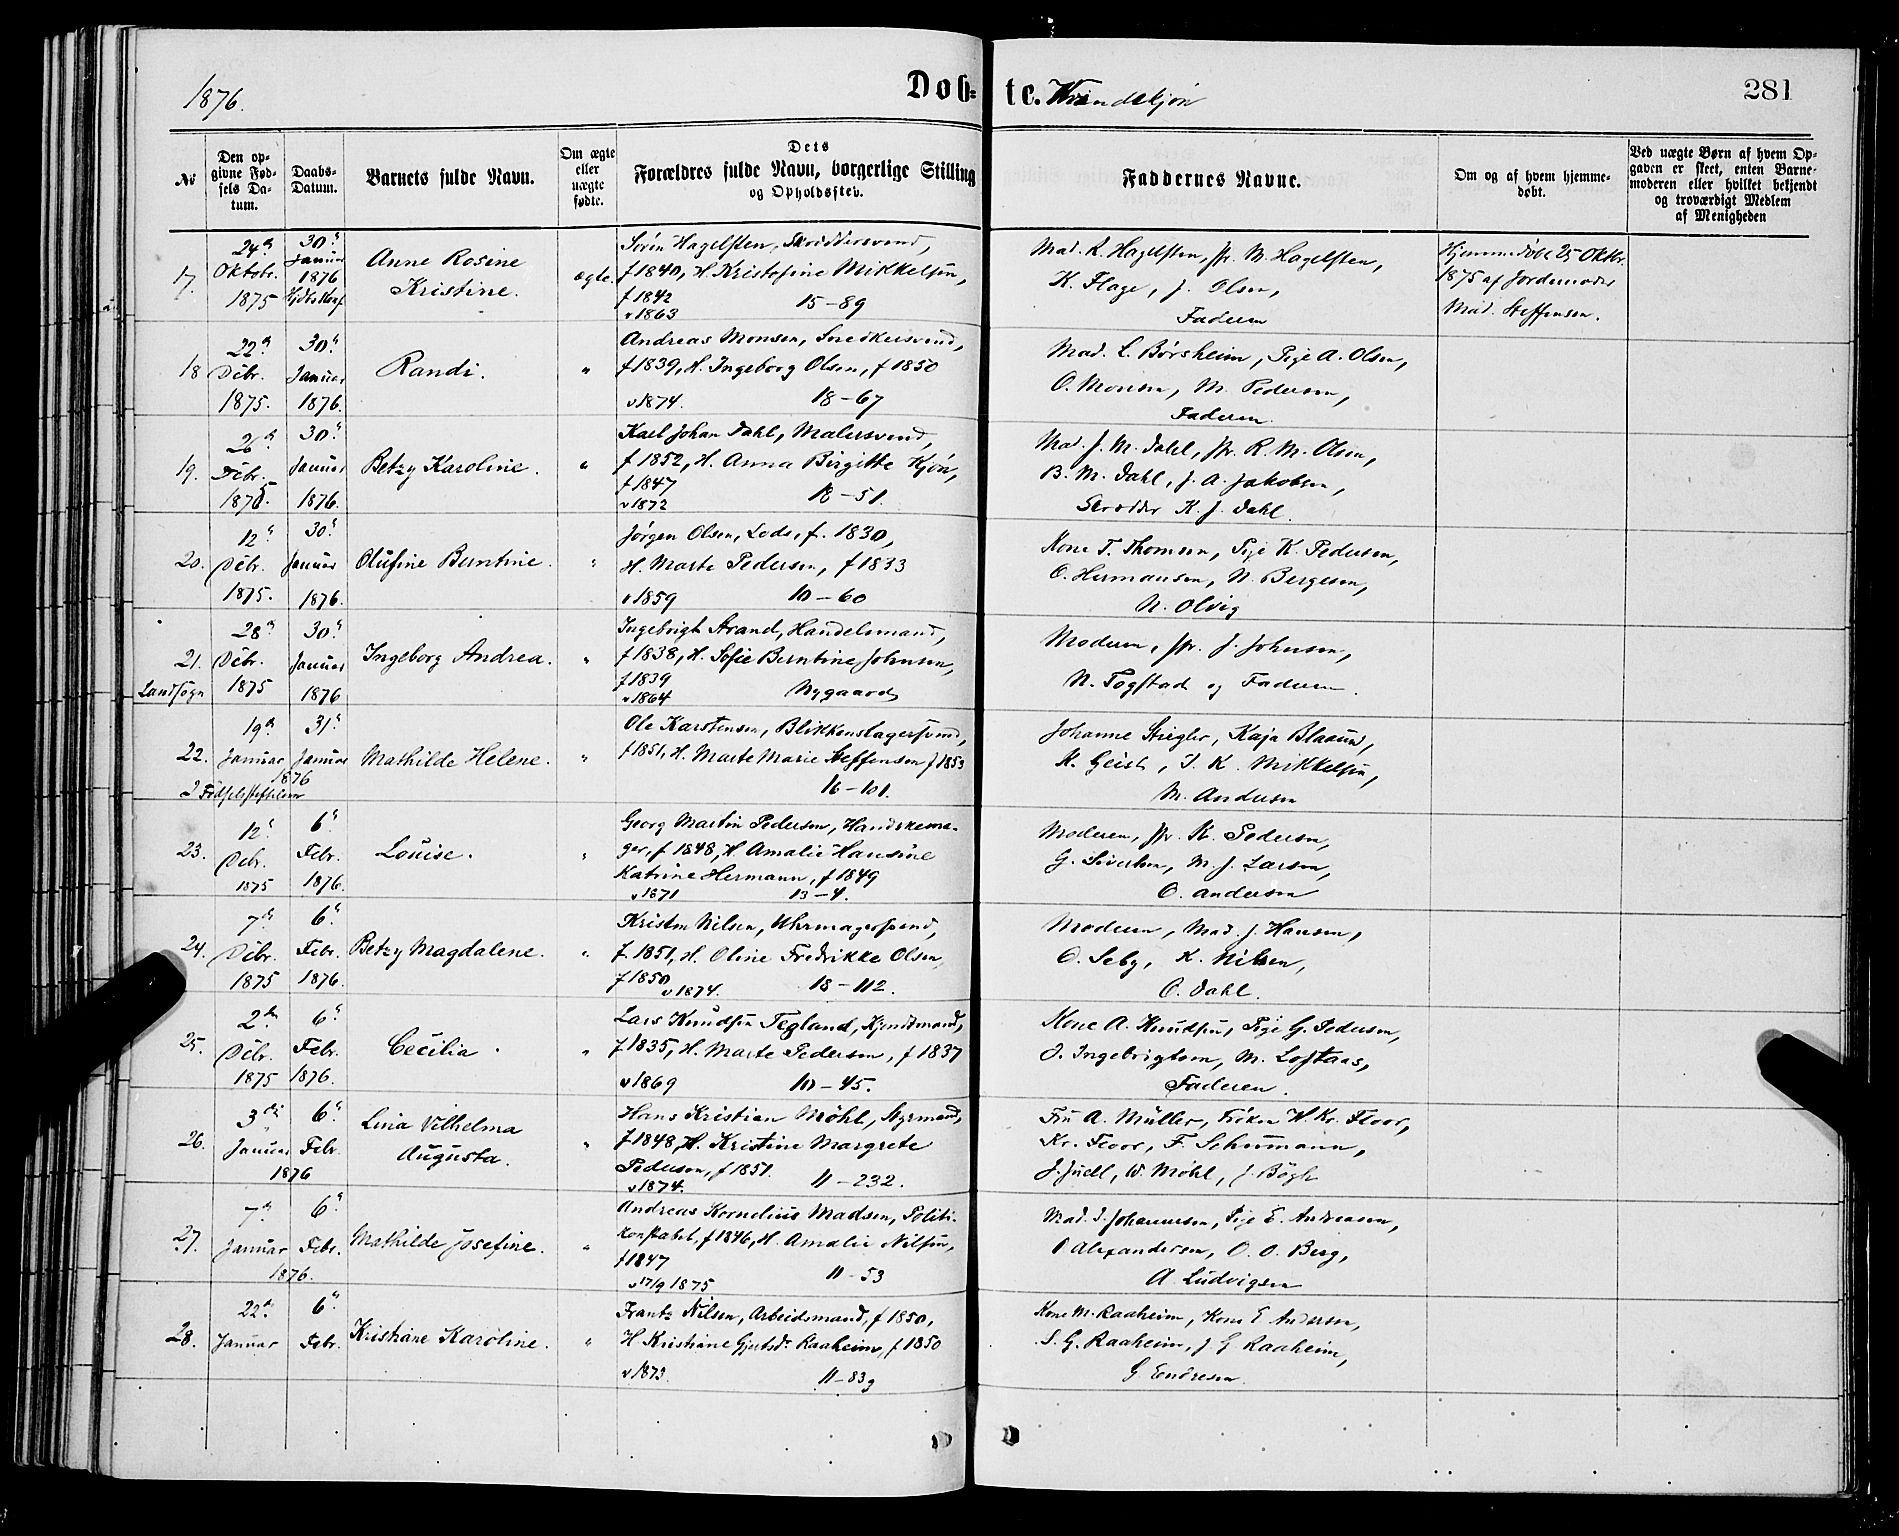 1876.
Døb-te. Kvindekjøn
281
No
Den opgivne Fødsels Datum.
Daabs-Datum.
Barnets fulde Navn.
Om ægte eller uægte fødte.
Dets Forældres fulde Navn, borgerlige Stilling og Opholdssted.
Faddernes Navne.
Om og af hvem hjemmedøbt.
Ved uægte Børn af hvem Opgaven er skeet, enten Barnemoderen eller hvilket bekjendt og troværdigt Medlem af Menigheden
17.
24de Oktobr. 1875
30te Januar 1876
Anne Rosine
Kristine.
ægte.
Sørén Hagelsten, Skræddersvend,
f 1840, H. Kristofine Mikkelsen,
f 1842
v 1863 15-89
Mad. K. Hagelsten, Jfr. M. Hagelsten,
K. Flage, J. Olsen,
Faderen
Hjemmedøbt 25 Oktbr.
1875 af Jordemoder
Mad. Steffensen.
18
22de Dcbr. 1875.
30te Januar 1876.
Randi.
"
Andreas Monsen, Snedkersvend,
f 1839, H. Ingeborg Olsen, f 1850
v 1874. 18-67
Mad. L. Børsheim, Pige A. Olsen,
O. Monsen, M. Pedersen,
Faderen.
19.
26de Dcbr. 1875.
30te Januar 1876.
Betzy Karoline.
"
Karl Johan Dahl, Malersvend,
f 1852, H. Anna Birgitte Kjøn,
f 1847
v 1872 18-51.
Mad. J. M. Dahl, Jfr. R. M. Olsen,
B. M. Dahl, J. A. Jakobsen,
K. J. Dahl.
20.
12te Dcbr. 1875.
30te Januar 1876.
Olufine Berntine.
"
Jørgen Olsen, Lods, f. 1830,
H. Marte Pedersen, f 1833
v 1859 10-60
Kone T. Thomsen, Pige K. Pedersen,
O. Hermansen, N. Bergesen,
N. Olvig
21.
Landsogn
28de Dcbr. 1875
30te Januar 1876
Ingeborg Andrea.
"
Ingebrigt Strand, Handelsmand,
f 1838, H. Sofie Berntine Johnsen,
f 1839
v 1864 Nygaard
Moderen, Jfr. J. Johnsen,
N. Togstad og Faderen.
22.
I Fødselsstiftelsen
19de Januar 1876
31te Januar
Mathilde Helene.
"
Ole Karstensen, Blikkenslagersvend,
f 1851, H. Marte Marie Steffensen f 1853
16-101.
Johanne Stiegler, Kaja Blaauw,
K. Geist, J. K. Mikkelsen,
M. Andersen
23.
12te Dcbr. 1875
6te Febr. 1876.
Louise.
"
Georg Martin Pedersen, Handskema-
ger, f 1848, H. Amalie Hansine
Katrine Hermann, f 1849
v 1871 13-4.
Moderen, Jfr. K. Pedersen,
G. Sivertsen, M. J. Larsen,
O. Andersen
24.
7de Dcbr. 1875
6te Febr. 1876.
Betzy Magdalene.
"
Kristen Nilsen, Uhrmagersvend,
f 1851, H. Oline Fredrikke Olsen,
f 1850
v 1874. 18-112.
Moderen, Mad. J. Hansen,
O. Seby, K. Nilsen,
O. Dahl.
25.
2den Dcbr. 1875
6te Febr. 1876.
Cecilia.
"
Lars Knudsen Tegland,
f 1835, H. Marte Pedersen, f 1837
v 1869 10-45.
Kone A. Knudsen, Pige G. Pedersen,
O. Ingebrigtsen, M. Loftaas,
Faderen.
26.
3die Januar 1876
6te Febr.
Lina Vilhelma
Augusta.
"
Hans Kristian Møhl, Styrmand,
f 1848, H. Kristine Margrete
Pedersen, f 1851.
v 1874. 11-232.
Fru A. Müller, Frøken W. Kr. Floor,
Kr. Floor, F. Schumann,
J. Juell, W. Møhl, J. Bøgh
27.
7de Januar 1876.
6te Febr.
Mathilde Josefine.
"
Andreas Kornelius Madsen, Politi-
konstabel, f 1846, H. Amalie Nilsen,
f 1847
v 17/9 1875 11-53
Mad. J. Johannesen, Pige E. Andreasen,
O Alexandersen, O. O. Berg,
A. Ludvigsen
28.
22de Januar
6te Febr.
Kristiane Karoline.
"
Frantz Nilsen, Arbeidsmand, f 1850,
H Kristiane Gjertsdr. Raaheim, f 1850
v 1873. 11-839
Kone M. Raaheim, Kone E Andersen,
S. G. Raaheim, J G Raaheim,
G Endresen.